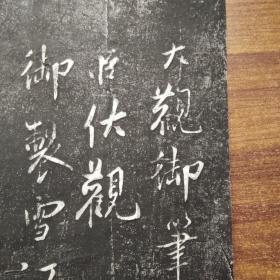 大觀御筆
臣伏觀
御製雪江